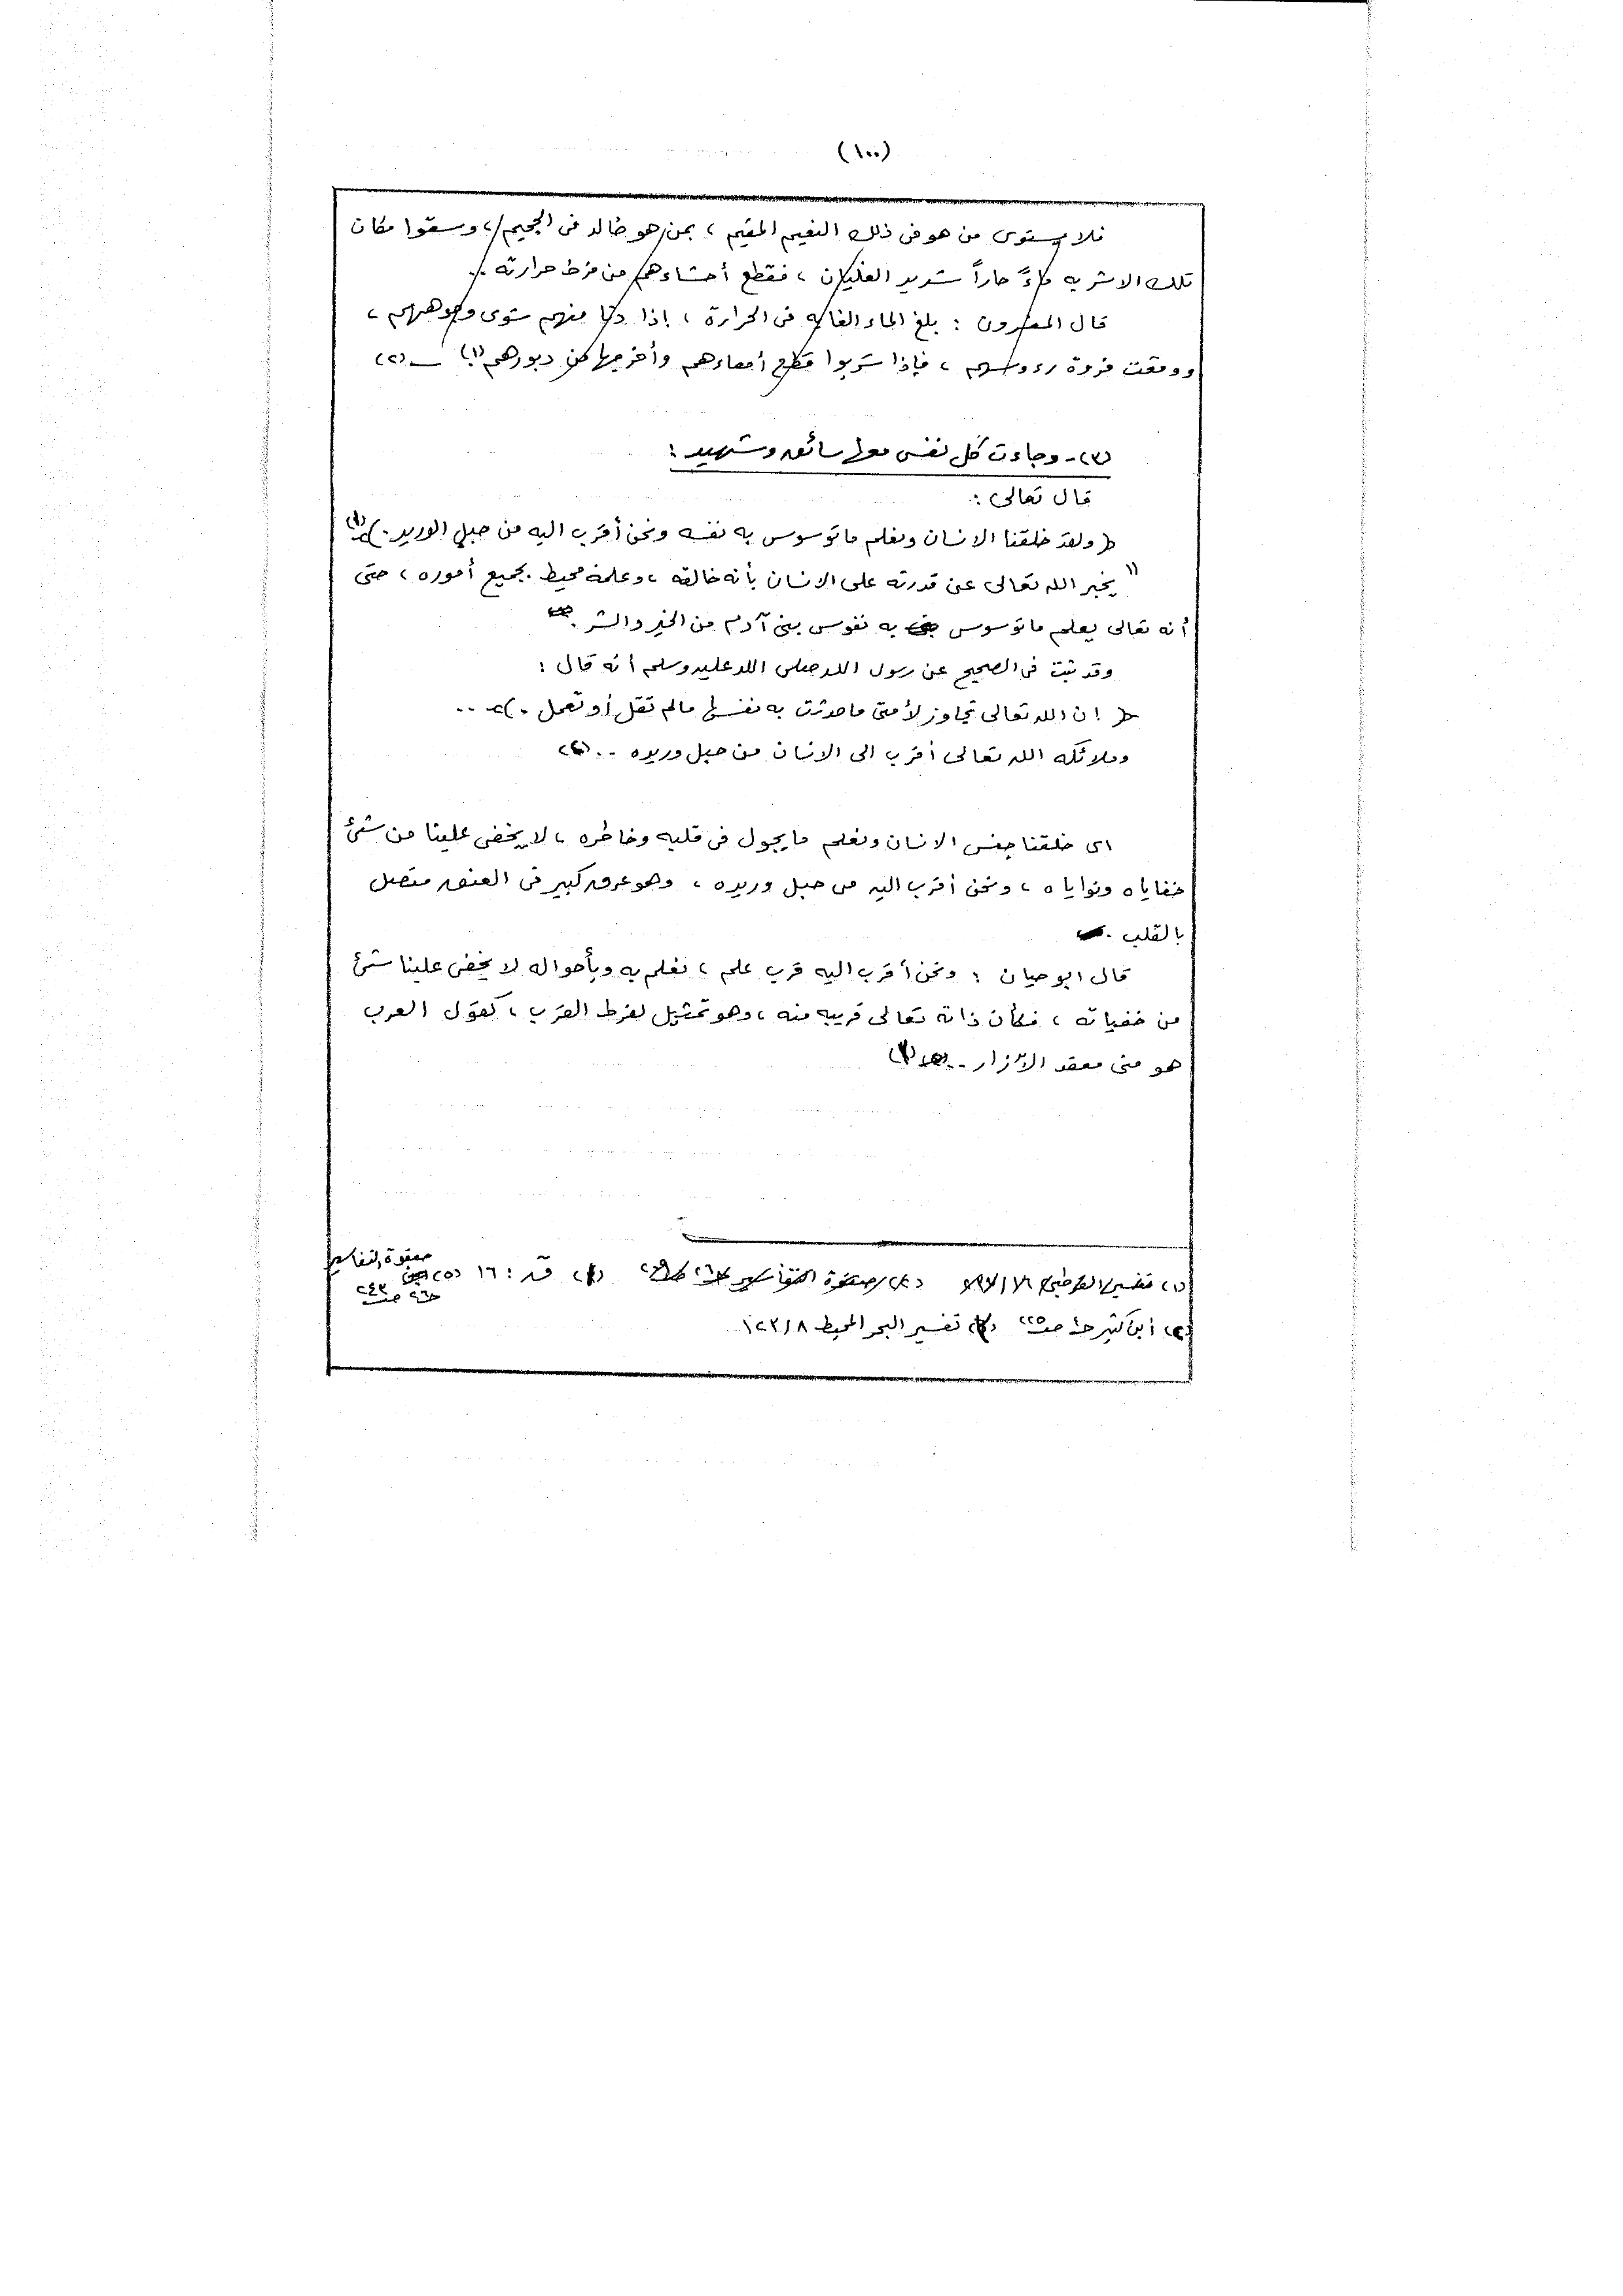 (١٠٠)
فلا يستوى من هو فى ذلك النعيم المقيم ، بمن هو خالد فى الجحيم ، وسقوا مكان
تلك الاشربه ماءً حاراً شديد الغليان ، فقطع أحشاءهم من فرط حرارته ..
قال المفسرون : بلغ الماء الغايه فى الحرارة ، إذا دنا منهم شوى وجوههم ،
ووقعت فروة رءوسهم ، فإذا شربوا قطع أمعاءهم وأخرجها من دبورهم (١) ـ (٢)
(٣) - وجاءت كل نفس معها سائق وشهيد :
قال تعالى :
( ولقد خلقنا الانسان ونعلم ما توسوس به نفسه ونحن أقرب اليه من حبل الوريد . )
" يخبر الله تعالى عن قدرته على الانسان بأنه خالقه ، وعلمه محيط بجميع أموره ، حتى
أنه تعالى يعلم ما توسوس به نفوس بنى آدم من الخير والشر .
وقد ثبت فى الصحيح عن رسول الله صلى الله عليه وسلم أنه قال :
( إن الله تعالى تجاوز لأمتى ما حدثت به نفسها مالم تقل أو تعمل . ) ..
وملائكه الله تعالى أقرب الى الانسان من حبل وريده ..
اى خلقنا جنس الانسان ونعلم ما يجول فى قلبه وخاطره ، لا يخفى علينا من شئ
خفاياه ونواياه ، ونحن أقرب اليه من حبل وريده ، وهو عرق كبير فى العنق متصل
بالقلب .
قال ابو حيان : ونحن أقرب اليه قرب علم ، نعلم به وبأحواله لا يخفى علينا شئ
من خفياته ، فكأن ذاته تعالى قريبه منه ، وهو تمثيل لفرط القرب ، كقول العرب
هو منى معقد الازار ..
(١) تفسير القرطبى (٢) صفوة التفاسير ق : ١٦ (٥) صفوة التفاسير
ابن كثير تفسير البحر المحيط ١٢٣/٨